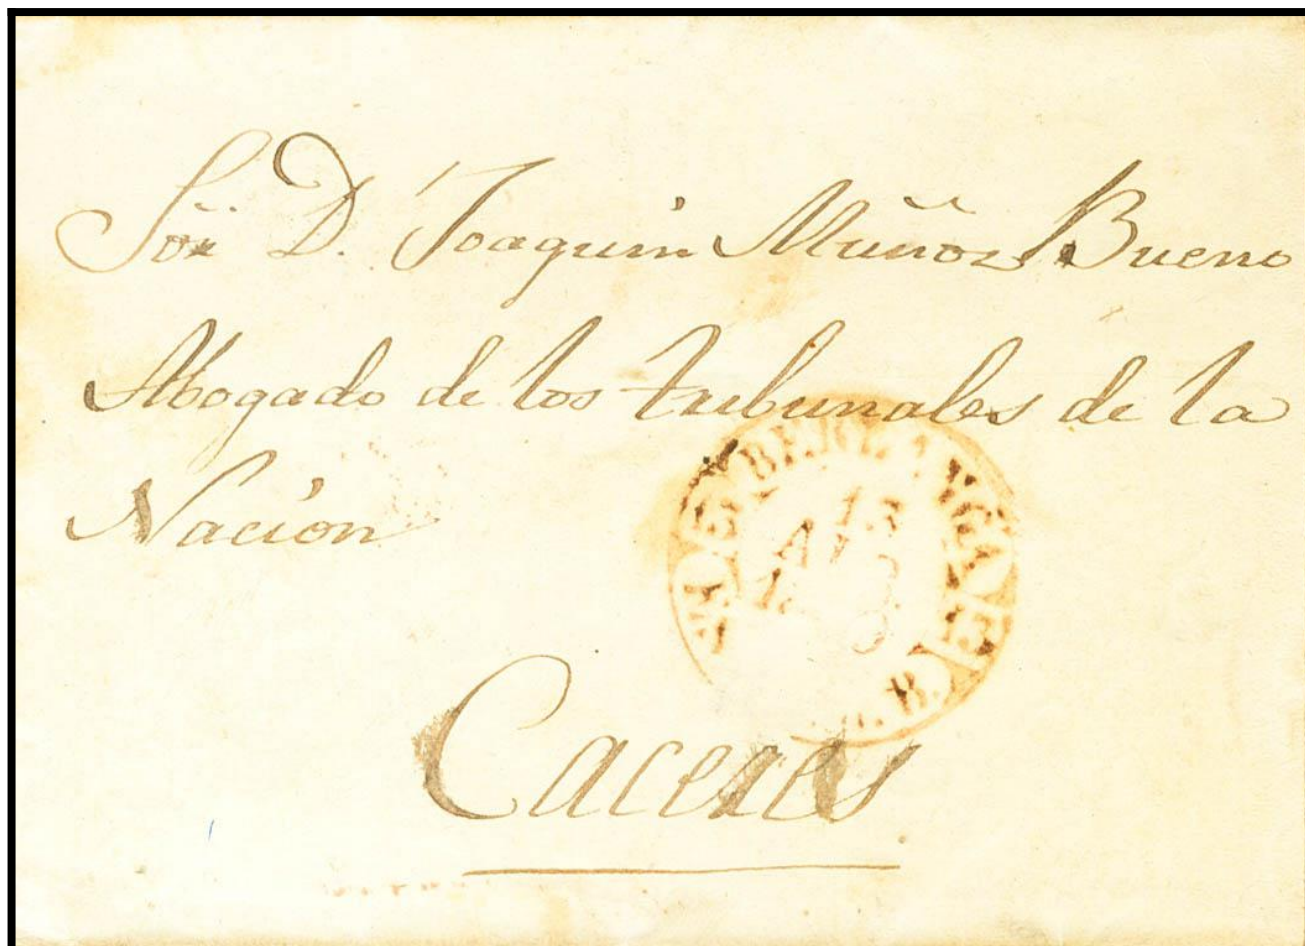 Sõr D. Joaquin Muñoz Bueno
Abogado de los tribunales de la
Nación
Caceres
15